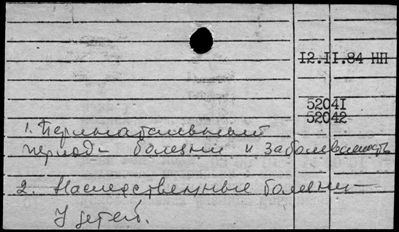 12.II.84 НП
52041
52042
1. Перинатальный
период - болезни и заболеваемость
2. Наследственные болезни
у детей.